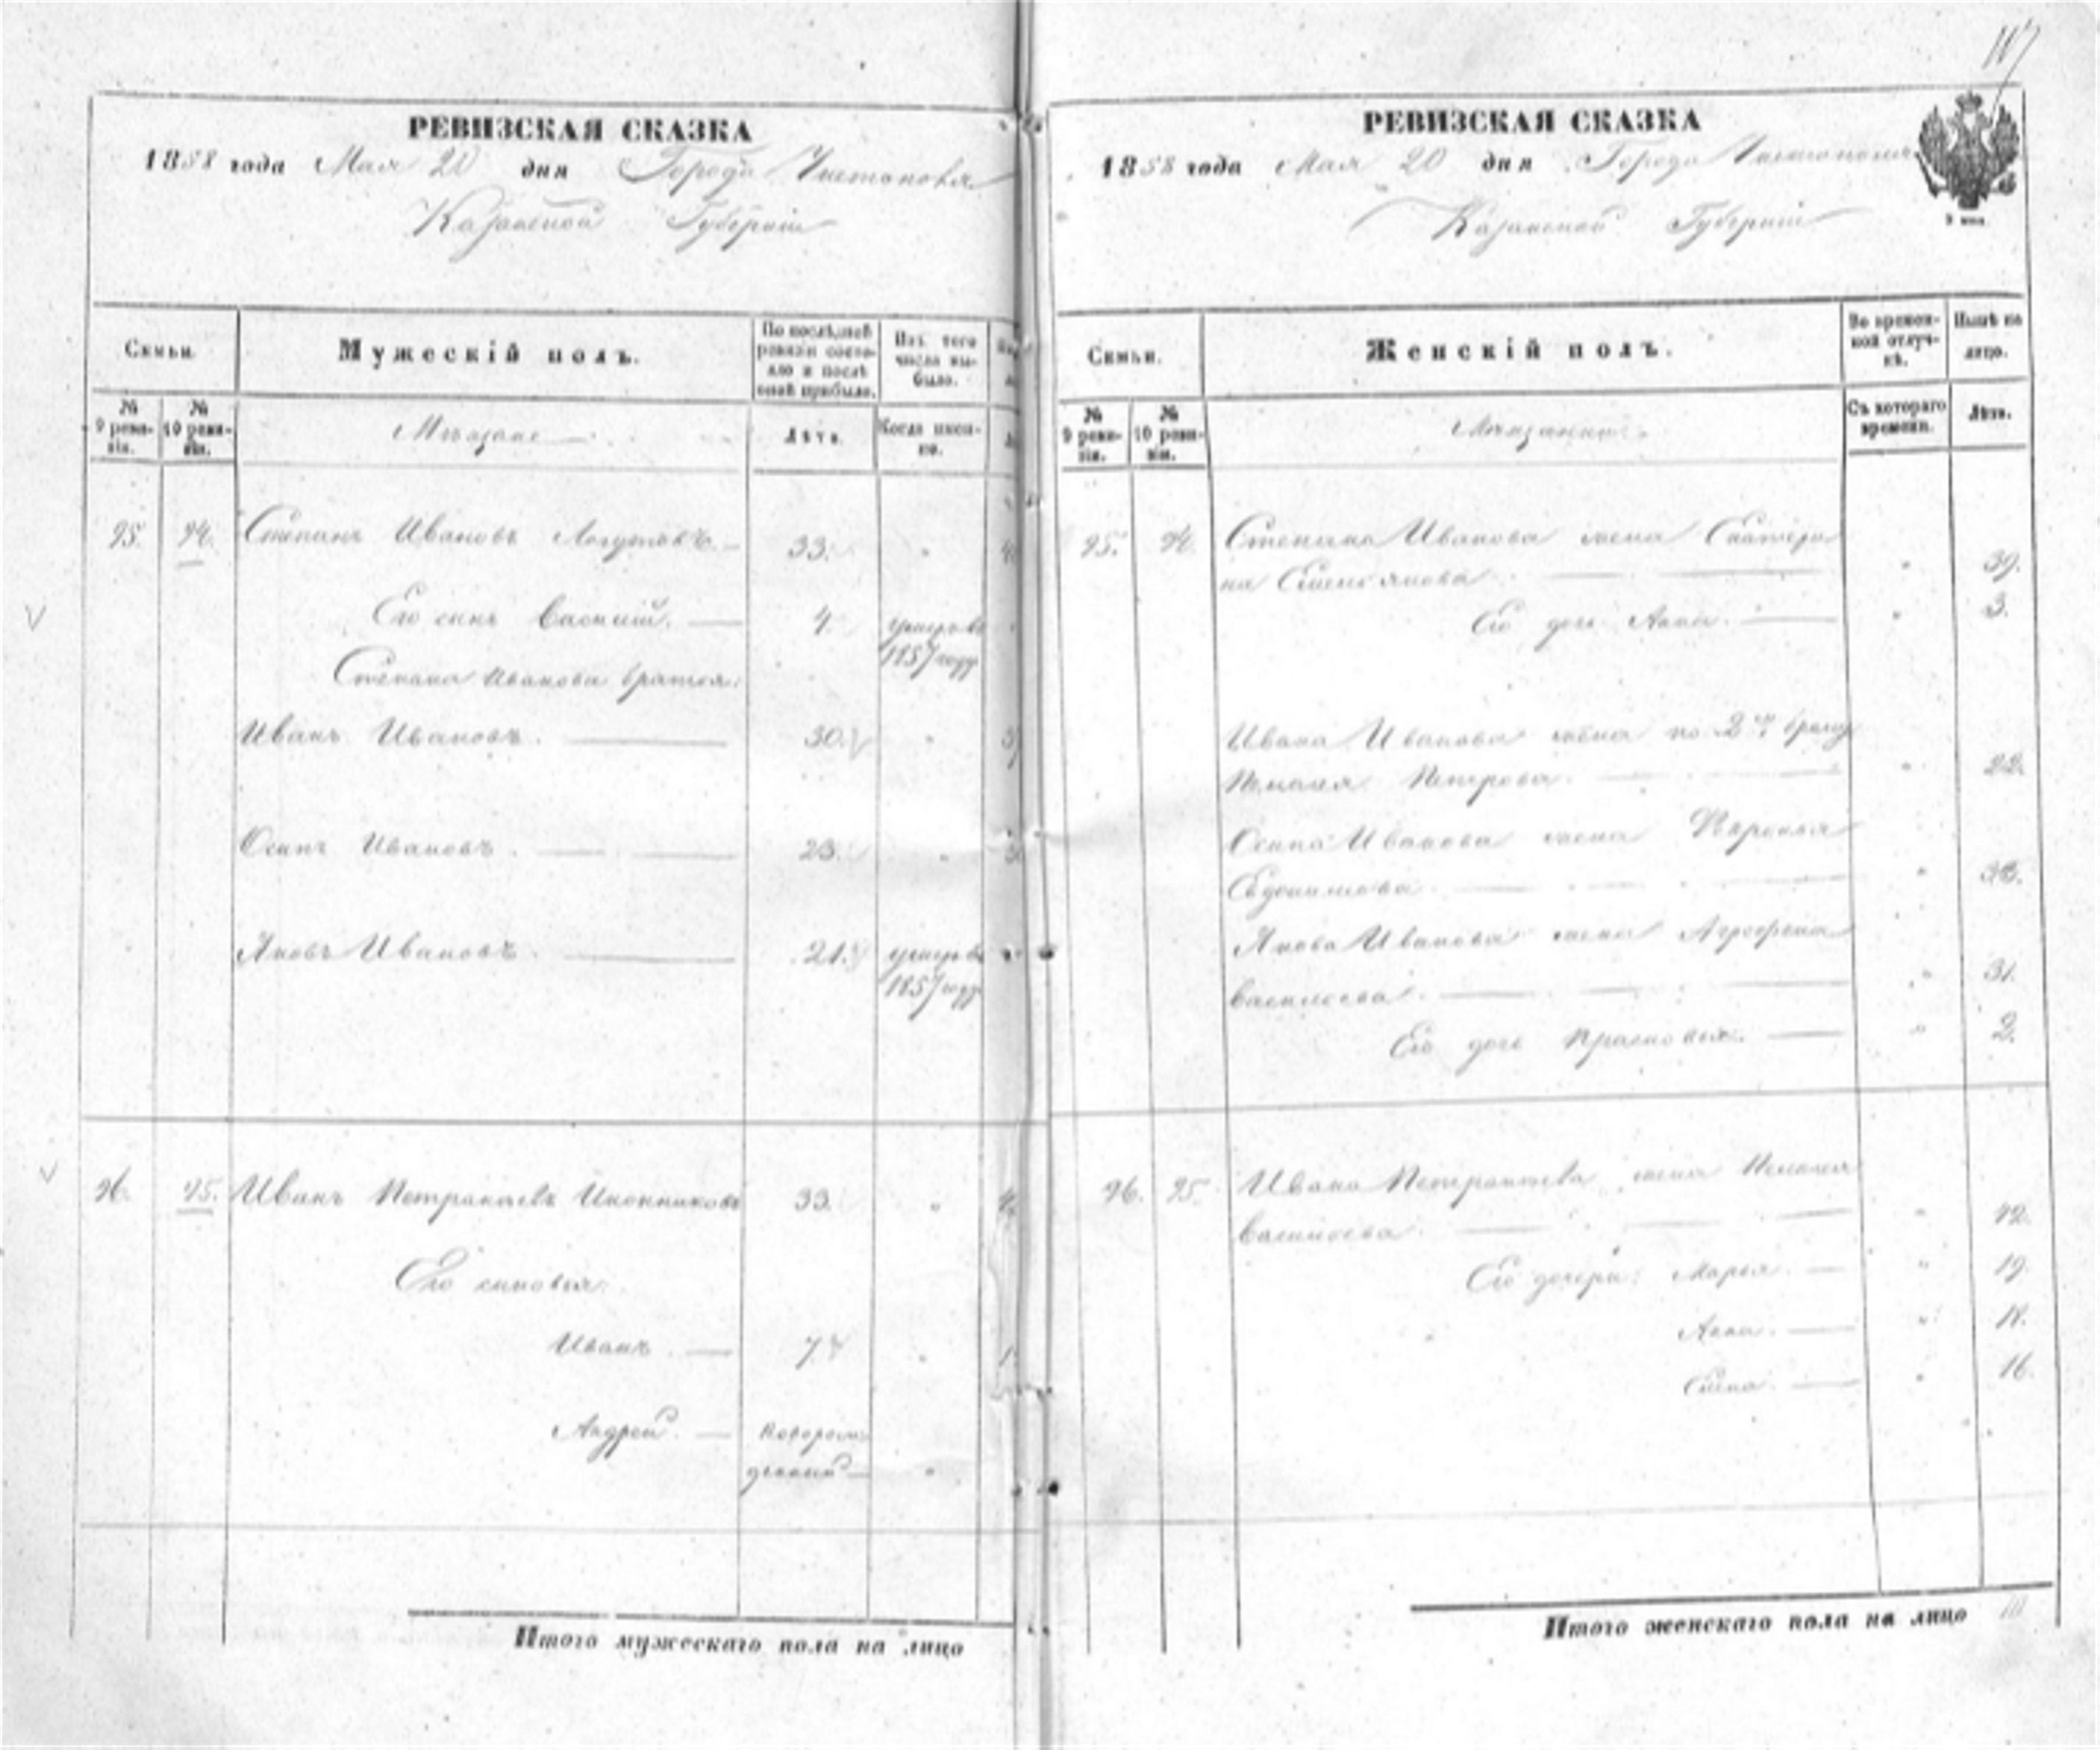 117
РЕВИЗСКАЯ СКАЗКА
1858 года Мая 20 дня Города Чистополя
Казанской Губерніи
Семьи.
Мужескій полъ.
По послѣдней ревизіи состояло и послѣ оной прибыло.
Изъ того числа выбыло.
№ 9 ревизіи.
№ 10 ревизіи.
Мѣщане
Лѣта.
Когда именно.
95. 94. Степанъ Ивановъ Логутовъ. 33.
Его сынъ Василій. 4. умеръ въ
1857 году
Степана Иванова братья:
Иванъ Ивановъ. 30.
Осипъ Ивановъ. 23.
Яковъ Ивановъ. 21. умеръ въ
1857 году
96. 95. Иванъ Петрантьевъ Иконниковъ 33.
Его сыновья:
Иванъ 7
Андрей. новорож-
денный
Итого мужескаго пола на лицо
РЕВИЗСКАЯ СКАЗКА
1858 года Мая 20 дня Города Чистополя
Казанской Губерніи
Семьи.
Женскій полъ.
Во временной отлучкѣ.
Нынѣ на лицо.
№ 9 ревизіи.
№ 10 ревизіи.
Мѣщанки.
Съ котораго времени.
Лѣта.
95. 94. Степана Иванова жена Екатери
на 39.
Его дочь Анна. 3.
Ивана Иванова жена по 2му браку
Пелагея Петрова. 22.
Осипа Иванова жена
Евдокимова.
Якова Иванова жена Агрофена
Васильева. 31.
Его дочь Прасковья. 2.
96. 95. Ивана Петрантьева жена Пелагея
Васильева. 42.
Его дочери: Марья. 19.
Анна. 18.
Елена. 16.
Итого женскаго пола на лицо